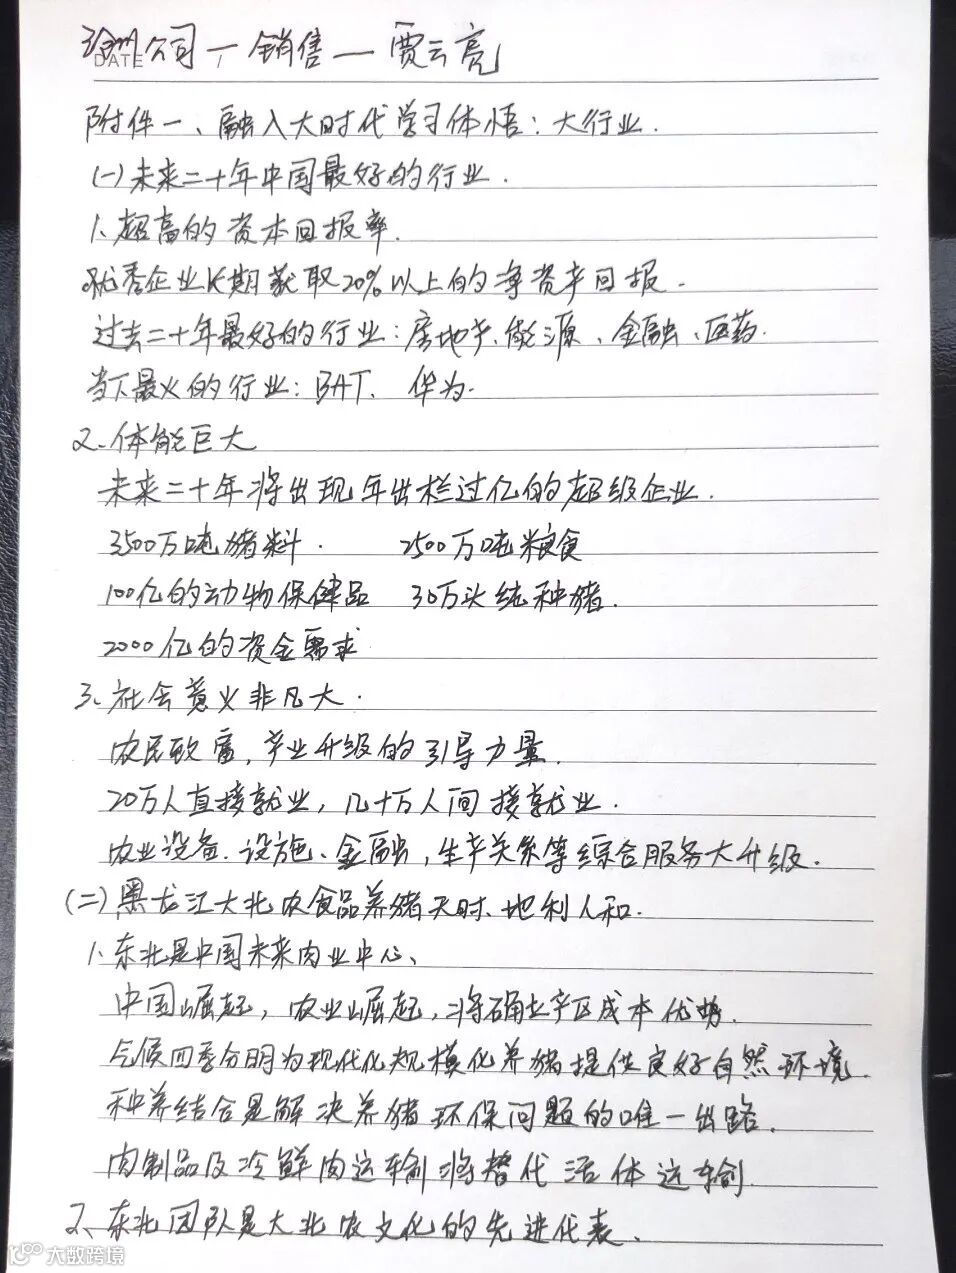 公司—销售—贾云亮
DATE
附件一、融入大时代学习体悟：大行业.
(一)未来二十年中国最好的行业.
1、超高的资本回报率.
优秀企业长期获取20%以上的净资产回报.
过去二十年最好的行业：房地产、能源、金融、医药.
当下最火的行业：BAT、华为.
2、体能巨大
未来二十年将出现年出栏过亿的超级企业.
3500万吨猪料. 2500万吨粮食
100亿的动物保健品 30万头纯种猪.
2000亿的资金需求
3、社会意义非凡大.
农民致富，产业升级的引导力量.
20万人直接就业，几十万人间接就业.
农业设备.设施、金融，生产关系等综合服务大升级.
(二)黑龙江大北农食品养猪天时、地利人和.
1、东北是中国未来肉业中心、
中国崛起，农业崛起，将确立产区成本优势.
气候四季分明为现代化规模化养猪提供良好自然环境.
种养结合是解决养猪环保问题的唯一出路.
肉制品及冷鲜肉运输将替代活体运输.
2、东北团队是大北农文化的先进代表.
大数跨境